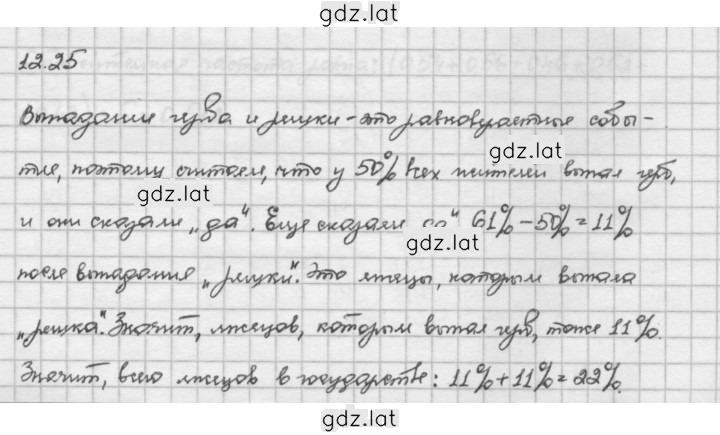 gdz.lat
12.25
Выпадание герба и решки - это равновероятные собы-
gdz.lat
тие, поэтому считаем, что у 50% всех жителей выпал герб,
gdz.lat
и они сказали „да“. Еще сказали „да“ 61% - 50% = 11%
gdz.lat
после выпадания „решки“. Это лжецы, которым выпала
„решка“. Значит, лжецов, которым выпал герб, тоже 11%.
Значит, всего лжецов в государстве: 11% + 11% = 22%.
gdz.lat